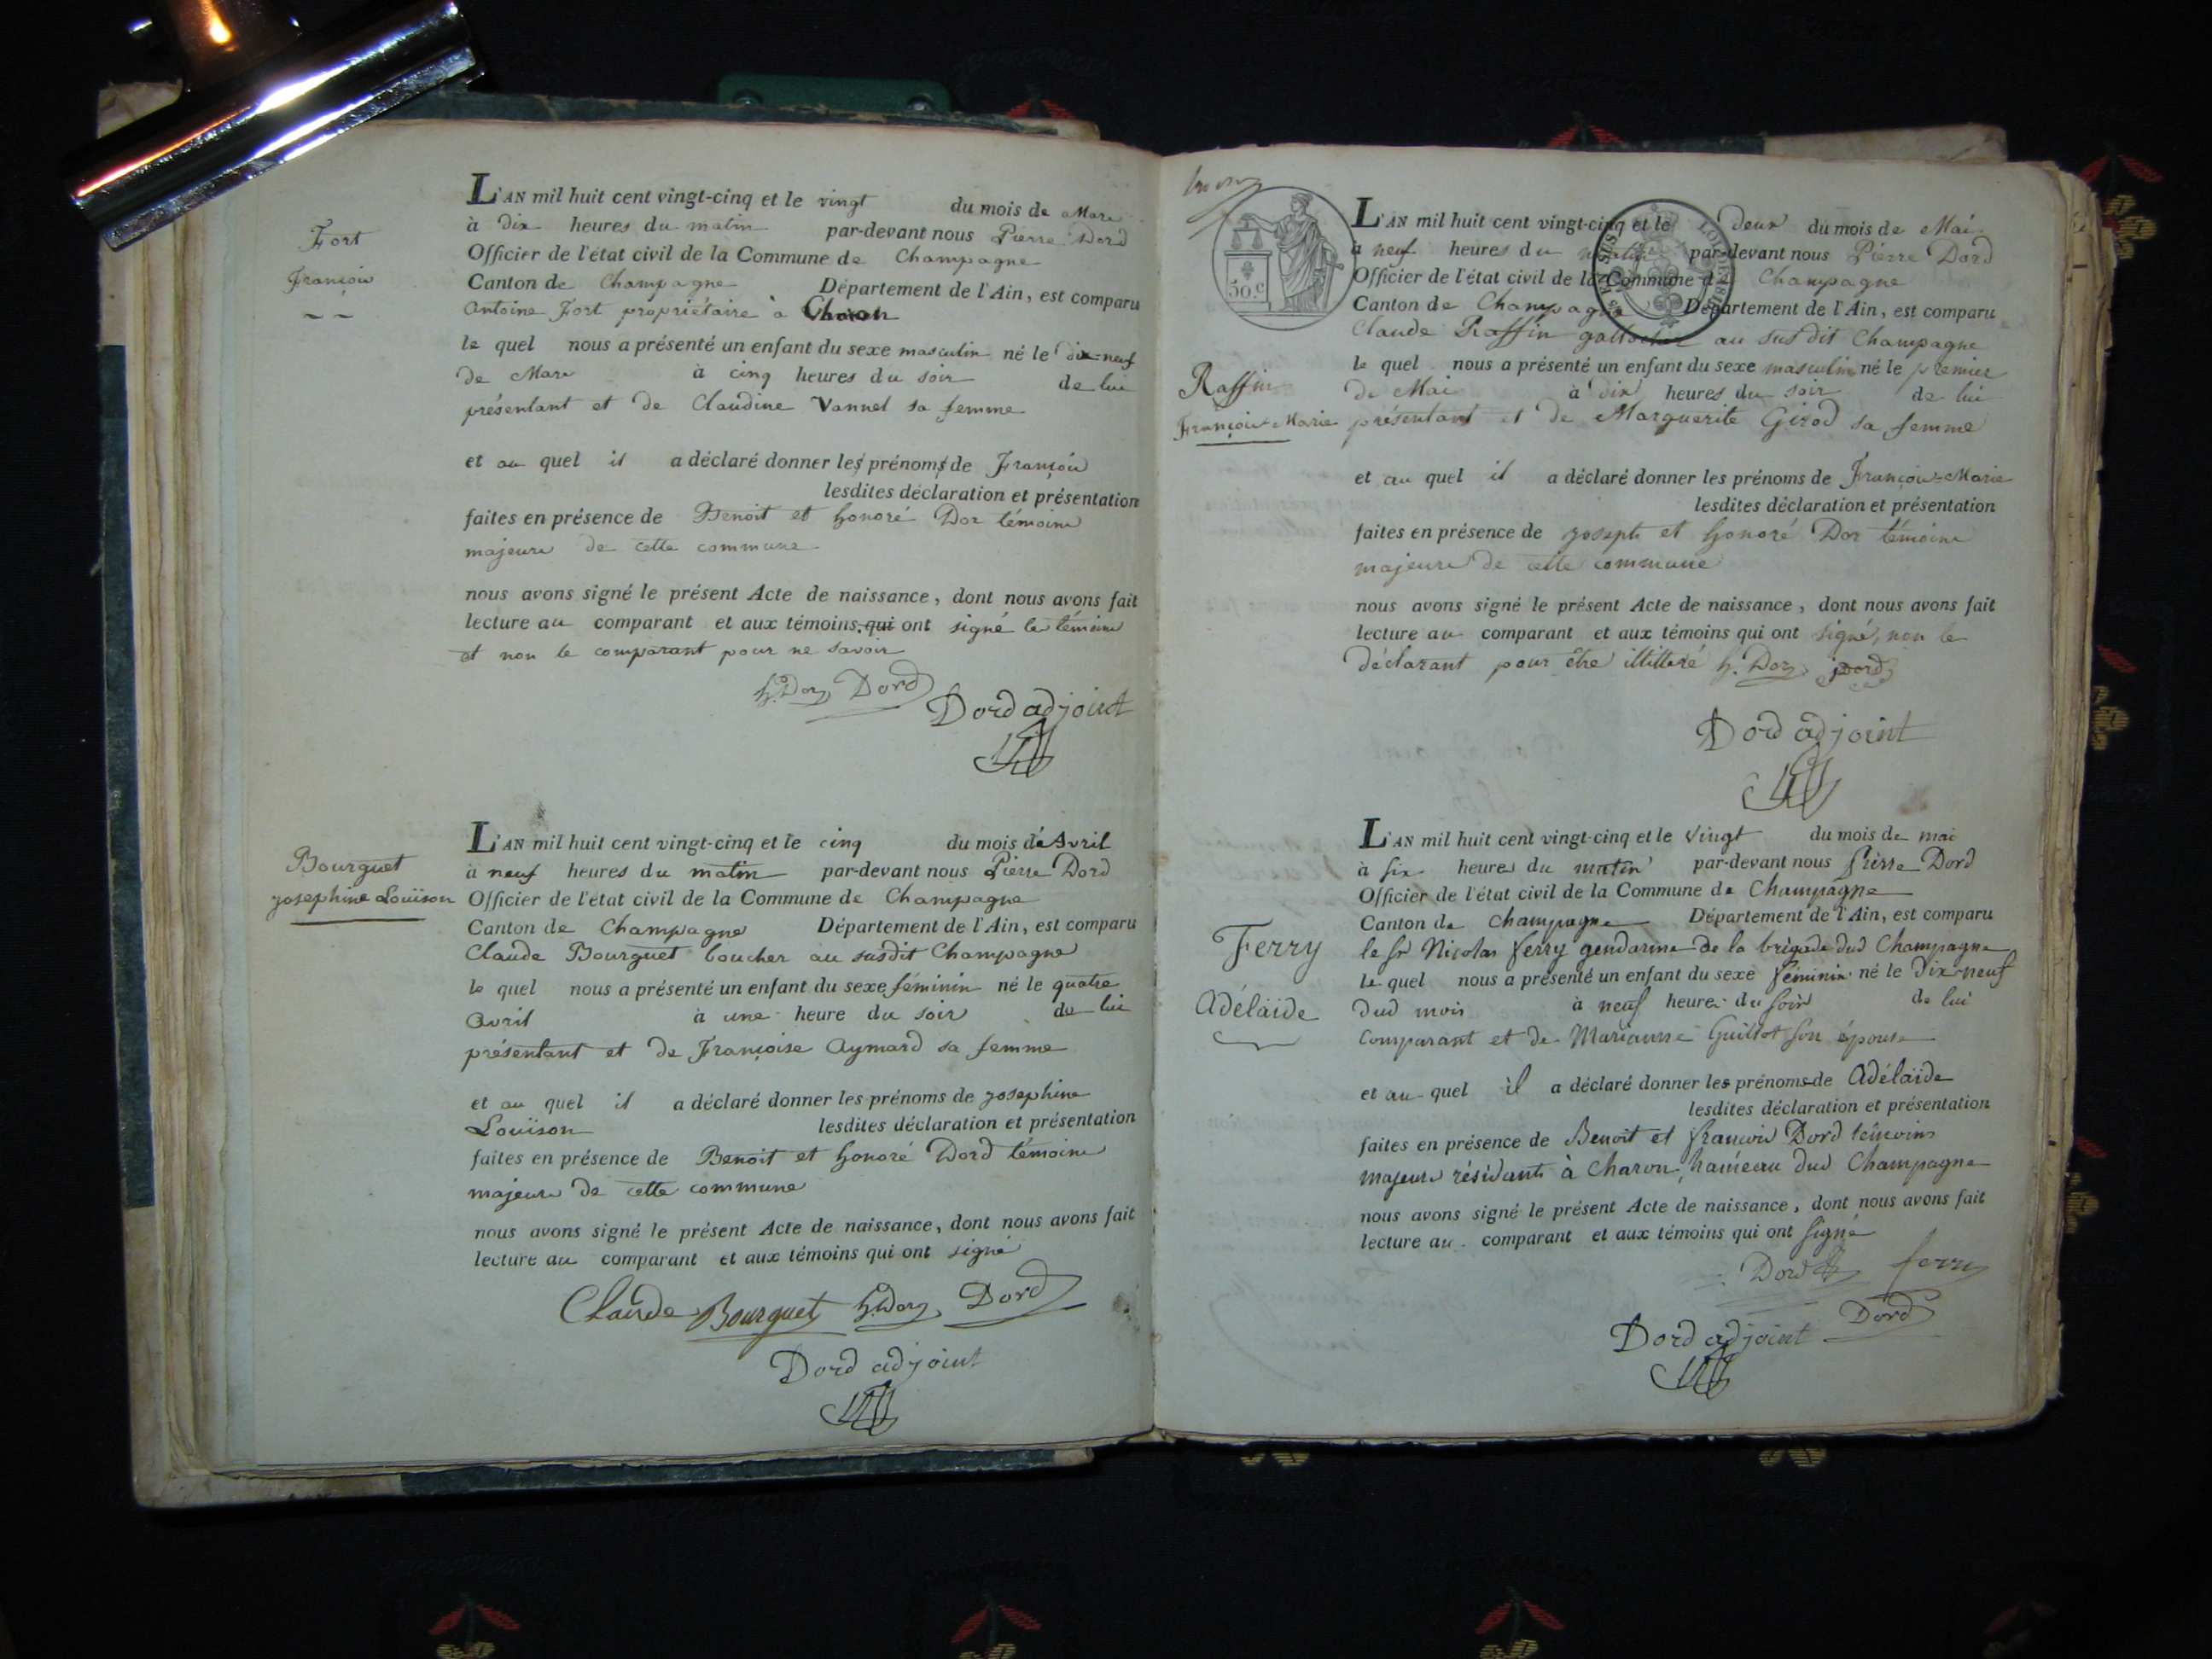 Fort
François
L'AN mil huit cent vingt-cinq et le vingt du mois de Mars
à dix heures du matin par-devant nous Pierre Dord
Officier de l'état civil de la Commune de Champagne
Canton de Champagne Département de l'Ain, est comparu
Antoine Fort propriétaire à Charon
le quel nous a présenté un enfant du sexe masculin né le dix-neuf
de Mars à cinq heures du soir de lui
présentant et de Claudine Vannel sa femme
et au quel il a déclaré donner les prénoms de François
lesdites déclaration et présentation
faites en présence de Benoit et honoré Dor témoins
majeurs de cette commune
nous avons signé le présent Acte de naissance, dont nous avons fait
lecture au comparant et aux témoins qui ont signé les témoins
et non le comparant pour ne savoir
h. Dor Dord
Dord adjoint
Bourguet
josephine Louïson
L'AN mil huit cent vingt-cinq et le cinq du mois de Avril
à neuf heures du matin par-devant nous Pierre Dord
Officier de l'état civil de la Commune de Champagne
Canton de Champagne Département de l'Ain, est comparu
Claude Bourguet boucher au susdit Champagne
le quel nous a présenté un enfant du sexe féminin né le quatre
Avril à une heure du soir de lui
présentant et de Françoise Aymard sa femme
et au quel il a déclaré donner les prénoms de josephine
Louïson lesdites déclaration et présentation
faites en présence de Benoit et honoré Dord témoins
majeurs de cette commune
nous avons signé le présent Acte de naissance, dont nous avons fait
lecture au comparant et aux témoins qui ont signé
Claude Bourguet h. Dor Dord
Dord adjoint
50.c
L'AN mil huit cent vingt-cinq et le deux du mois de Mai
à neuf heures du matin par-devant nous Pierre Dord
Officier de l'état civil de la Commune de Champagne
Canton de Champagne Département de l'Ain, est comparu
Claude Raffin au susdit Champagne
Raffin
François-Marie
le quel nous a présenté un enfant du sexe masculin né le premier
de Mai à dix heures du soir de lui
présentant et de Marguerite Girod sa femme
et au quel il a déclaré donner les prénoms de François-Marie
lesdites déclaration et présentation
faites en présence de joseph et honoré Dor témoins
majeurs de cette commune
nous avons signé le présent Acte de naissance, dont nous avons fait
lecture au comparant et aux témoins qui ont signé, non le
déclarant pour être illitteré h. Dor jDord
Dord adjoint
Ferry
Adélaïde
L'AN mil huit cent vingt-cinq et le vingt du mois de mai
à six heures du matin par-devant nous Pierre Dord
Officier de l'état civil de la Commune de Champagne
Canton de Champagne Département de l'Ain, est comparu
le sr Nicolas ferry gendarme de la brigade dud Champagne
le quel nous a présenté un enfant du sexe féminin né le dix-neuf
dud mois à neuf heures du soir de lui
comparant et de Marianne Guillot son épouse
et au quel il a déclaré donner les prénoms de Adélaïde
lesdites déclaration et présentation
faites en présence de Benoit et françois Dord témoins
majeurs résidants à Charon, hameau dud Champagne
nous avons signé le présent Acte de naissance, dont nous avons fait
lecture au comparant et aux témoins qui ont signé
Dord ferry
Dord adjoint Dord